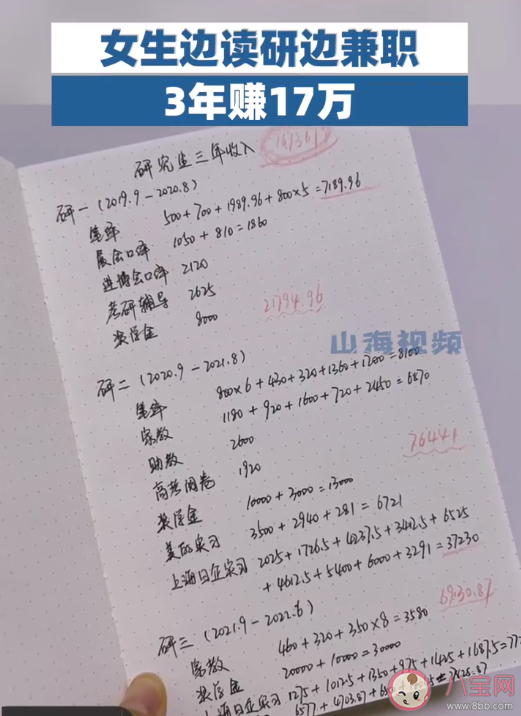 女生边读研边兼职
3年赚17万
研究生三年收入
研一 (2019.9-2020.8)
笔译 500+700+1989.96+800×5=7189.96
展会口译 1050+810=1860
进博会口译 2120
考研辅导 2625
奖学金 8000
21794.96
山海视频
研二 (2020.9-2021.8)
笔译 800×6+430+320+1360+1200=8100
家教 1180+920+1600+720+2450=6870
助教 2600
高考阅卷 1920
76441
奖学金 10000+3000=13000
美的实习 3500+2940+281=6721
上海日企实习 2025+1726.5+4237.5+3412.5+6525
+4612.5+5400+6000+3291=37230
研三 (2021.9-2022.6)
家教 460+320+350×8=3580
奖学金 20000+10000=30000
上海日企实习 1275+1012.5+1350+975+1425+1687.5=77
八宝网
www.8bb.com